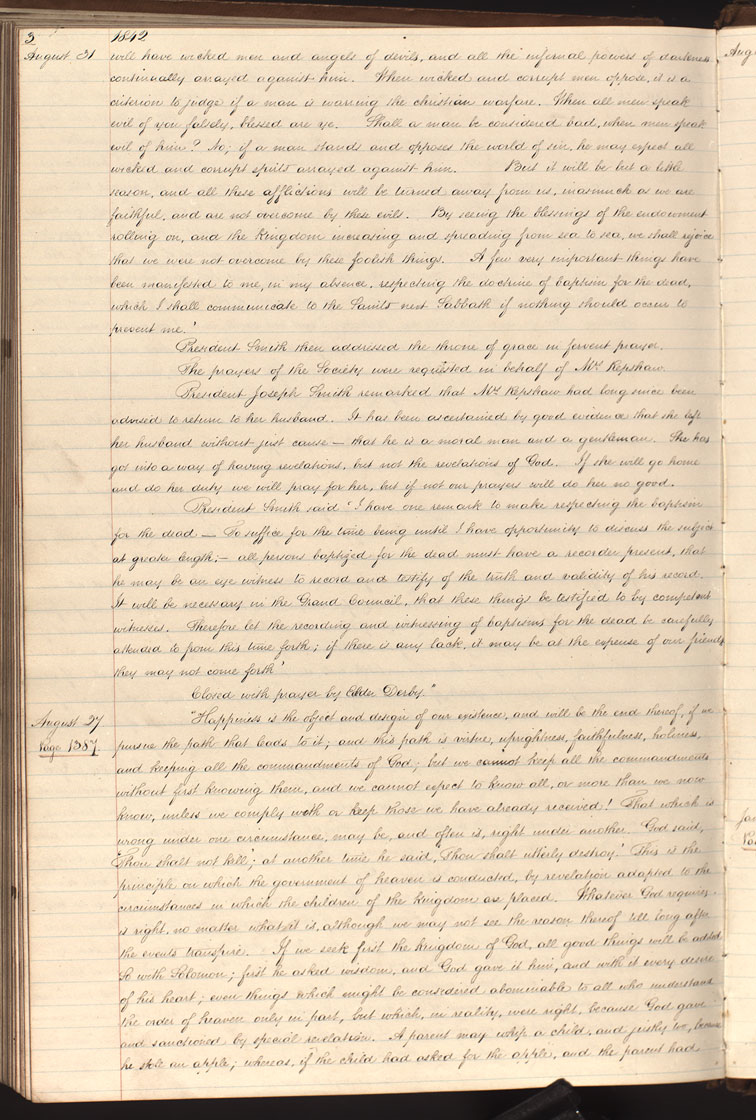 3 1842
August 31 will have wicked men and angels of devils, and all the infernal powers of darkness
continually arrayed against him. When wicked and corrupt men oppose, it is a
criterion to judge if a man is warring the christian warfare. When all men speak
evil of you falsely, blessed are ye. Shall a man be considered bad, when men speak
evil of him? No; if a man stands and opposes the world of sin, he may expect all
wicked and corrupt spirits arrayed against him. But it will be but a little
season, and all these afflictions will be turned away from us, inasmuch as we are
faithful, and are not overcome by these evils. By seeing the blessings of the endowment
rolling on, and the Kingdom increasing and spreading from sea to sea, we shall rejoice
that we were not overcome by these foolish things. A few very important things have
been manifested to me, in my absence, respecting the doctrine of baptism for the dead,
which I shall communicate to the Saints next Sabbath if nothing should occur to
prevent me.'
President Smith then addressed the throne of grace in fervent prayer.
The prayers of the Society were requested in behalf of Mrs Repshaw.
President Joseph Smith remarked that Mrs Repshaw had long since been
advised to return to her husband. It has been ascertained by good evidence that she left
her husband without just cause — that he is a moral man and a gentleman. She has
got into a way of having revelations, but not the revelations of God. If she will go home
and do her duty we will pray for her, but if not our prayers will do her no good.
President Smith said 'I have one remark to make respecting the baptism
for the dead — To suffice for the time being until I have opportunity to discuss the subject
at greater length;— all persons baptized for the dead must have a recorder present, that
he may be an eye witness to record and testify of the truth and validity of his record.
It will be necessary in the Grand Council, that these things be testified to by competent
witnesses. Therefore let the recording and witnessing of baptisms for the dead be carefully
attended to from this time forth; if there is any lack, it may be at the expense of our friends
they may not come forth'
Closed with prayer by Elder Derby."
August 27 "Happiness is the object and design of our existence, and will be the end thereof, if we
Page 1387. pursue the path that leads to it; and this path is virtue, uprightness, faithfulness, holiness,
and keeping all the commandments of God; but we cannot keep all the commandments
without first knowing them, and we cannot expect to know all, or more than we now
know, unless we comply with or keep those we have already received! That which is
wrong under one circumstance, may be, and often is, right under another. God said,
'Thou shalt not kill; at another time he said, Thou shalt utterly destroy.' This is the
principle on which the government of heaven is conducted, by revelation adapted to the
circumstances in which the children of the kingdom are placed. Whatever God requires
is right, no matter what it is, although we may not see the reason thereof till long after
the events transpire. If we seek first the kingdom of God, all good things will be added
So with Solomon; first he asked wisdom, and God gave it him, and with it every desire
of his heart; even things which might be considered abominable to all who understand
the order of heaven only in part, but which, in reality, were right, because God gave
and sanctioned by special revelation. A parent may whip a child, and justly too, because
he stole an apple; whereas, if the child had asked for the apple, and the parent had